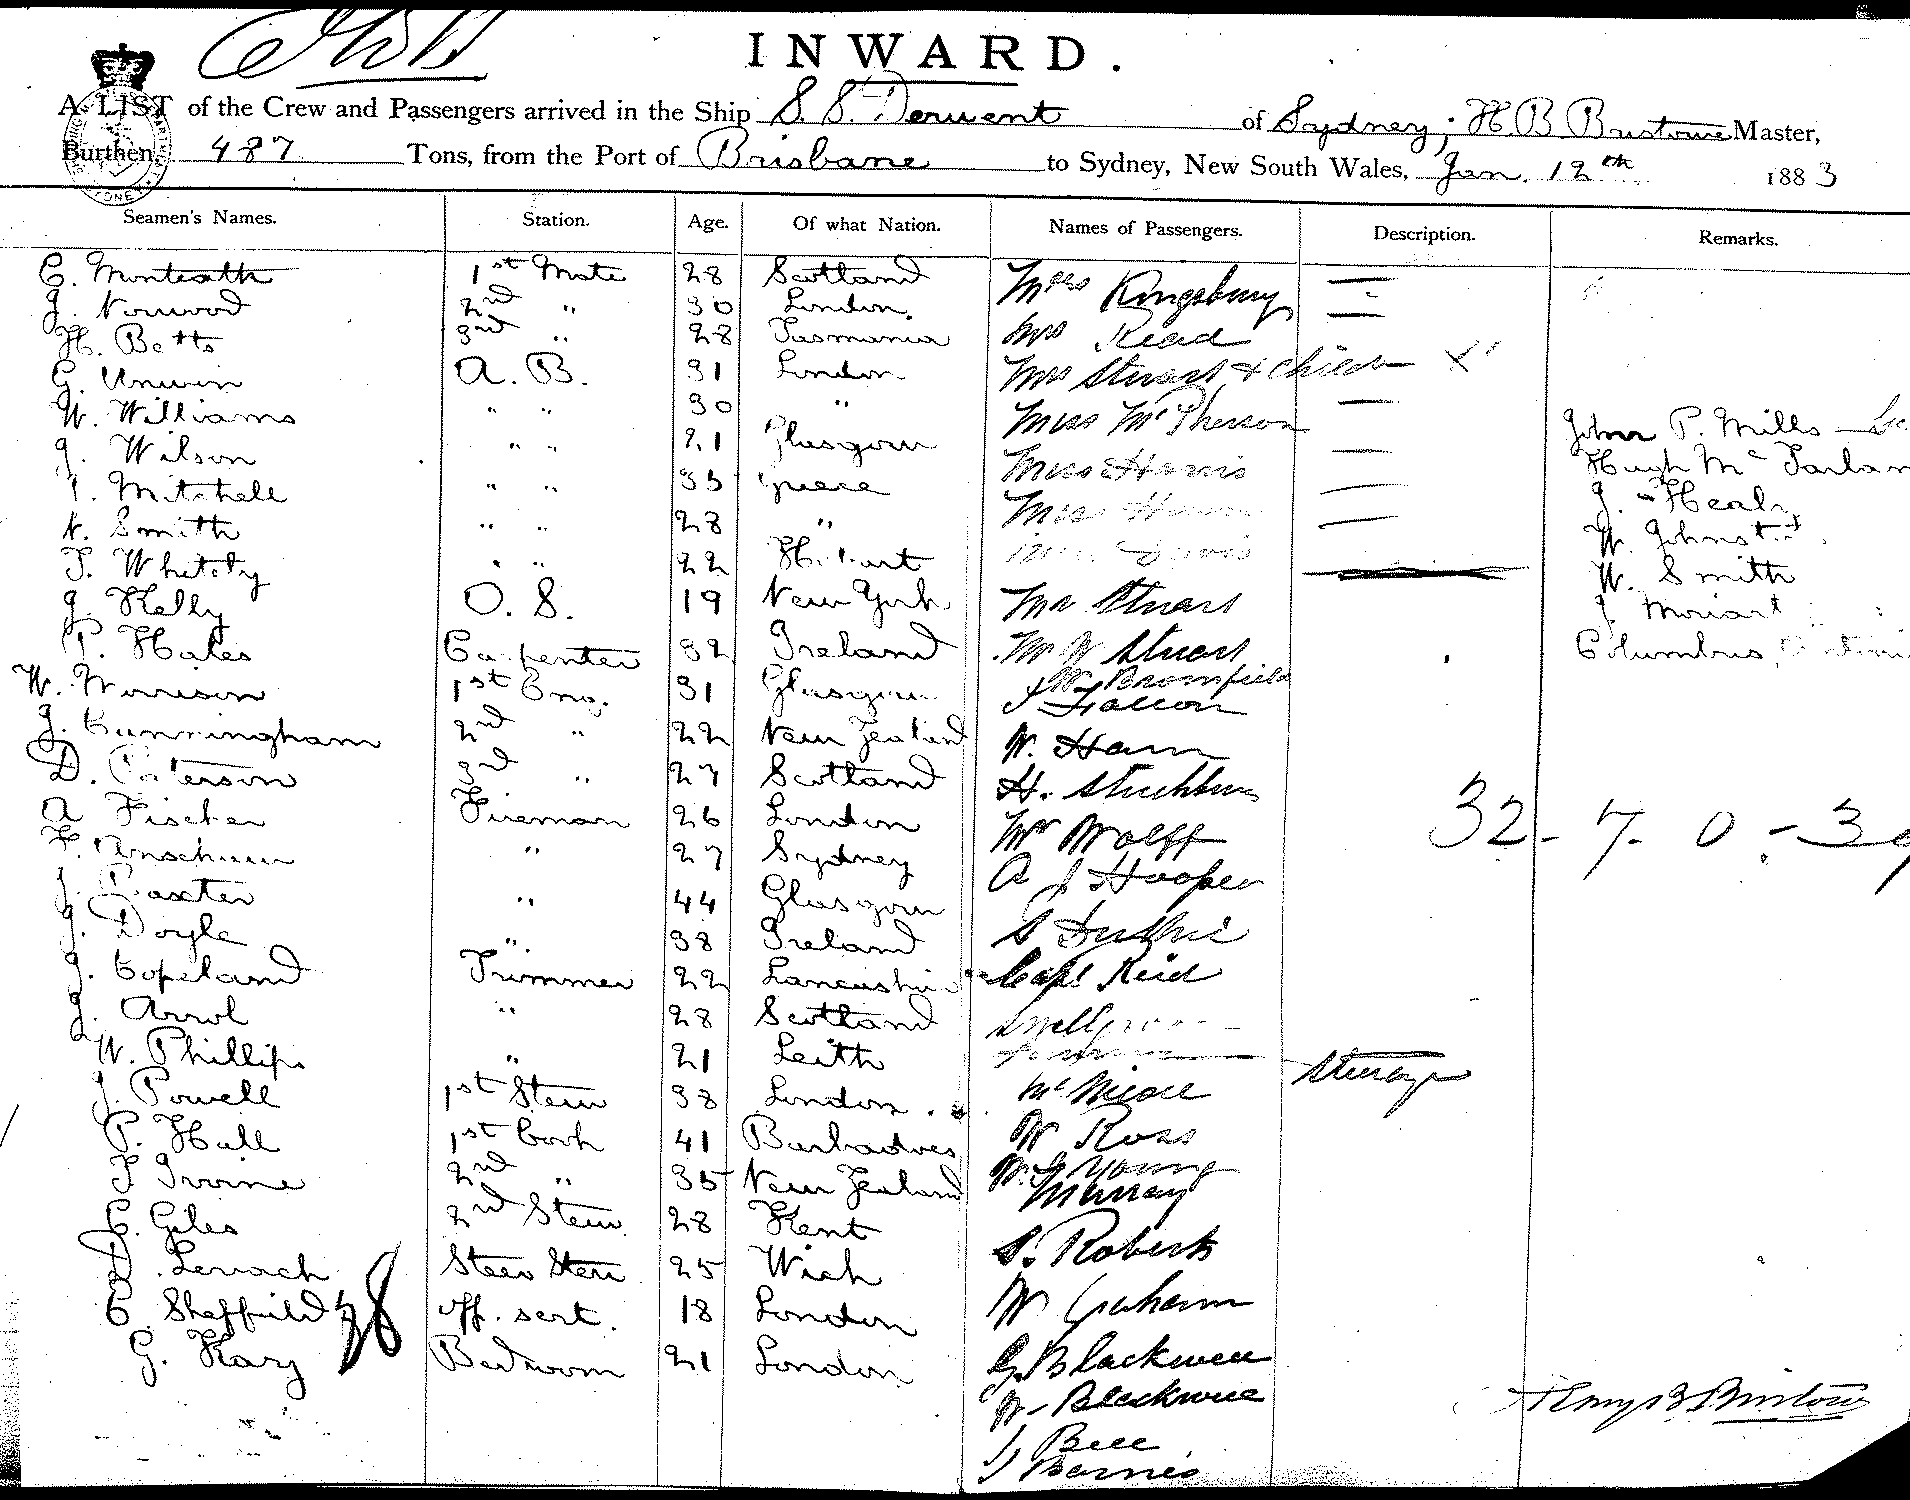 INWARD.
A LIST of the Crew and Passengers arrived in the Ship S. S. Derwent of Sydney, H B Bristowe Master,
Burthen, 487 Tons, from the Port of Brisbane to Sydney, New South Wales, Jan. 12th 1883
Seamen's Names. Station. Age. Of what Nation. Names of Passengers. Description. Remarks.
C. Monteath 1st Mate 28 Scotland
J. Norwood 2nd " 30 London
H. Betts 3rd " 28 Tasmania
G. Unwin A. B. 31 London
W. Williams " " 30 "
J. Wilson " " 21 Glasgow
Mitchell " " 35 Greece
Smith " " 28 "
T. Whitely " " 22 Hobart
J. Kelly O. S. 19 New York
P. Hales Carpenter 32 Ireland
W. Morrison 1st Eng. 31 Glasgow
J. Cunningham 2nd " 22 New Zealand
D. Paterson 3rd " 27 Scotland
A Fischer Fireman 26 London
" 27 Sydney
J. Baxter " 44 Glasgow
J. Doyle " 38 Ireland
J. Copeland Trimmer 22 Lancashire
J. Arrol " 28 Scotland
W. Phillips " 21 Leith
J. Powell 1st Stew 38 London
P. Hall 1st Cook 41 Barbadoes
Irvine 2nd " 35 New Zealand
C. Giles 2nd Stew 28 Kent
D. Steer Stew 25 Wick
C. Sheffield off. sert. 18 London
G. Kary Bedroom 21 London
28
Mrs Kingsbury
Mrs Read
Mrs Stuart & child
Miss McPherson
Miss Harris
Miss
Davis
Mr Stuart
Mr W Stuart
Bromfield
Falcon
W. Ham
H.
Mr Wolff
A J Hooper
S Duthie
Capt Reid
Steerage
McNicoll
W Ross
Young
Murray
S. Roberts
W Graham
G. Blackwell
W. Blackwell
J Bell
J Barnes
John P. Mills
Hugh Mc
J. Healy
W. Johnst
W. Smith
J. Moriart
Columbus
32 - 7 - 0 - 39
Henry B Bristowe